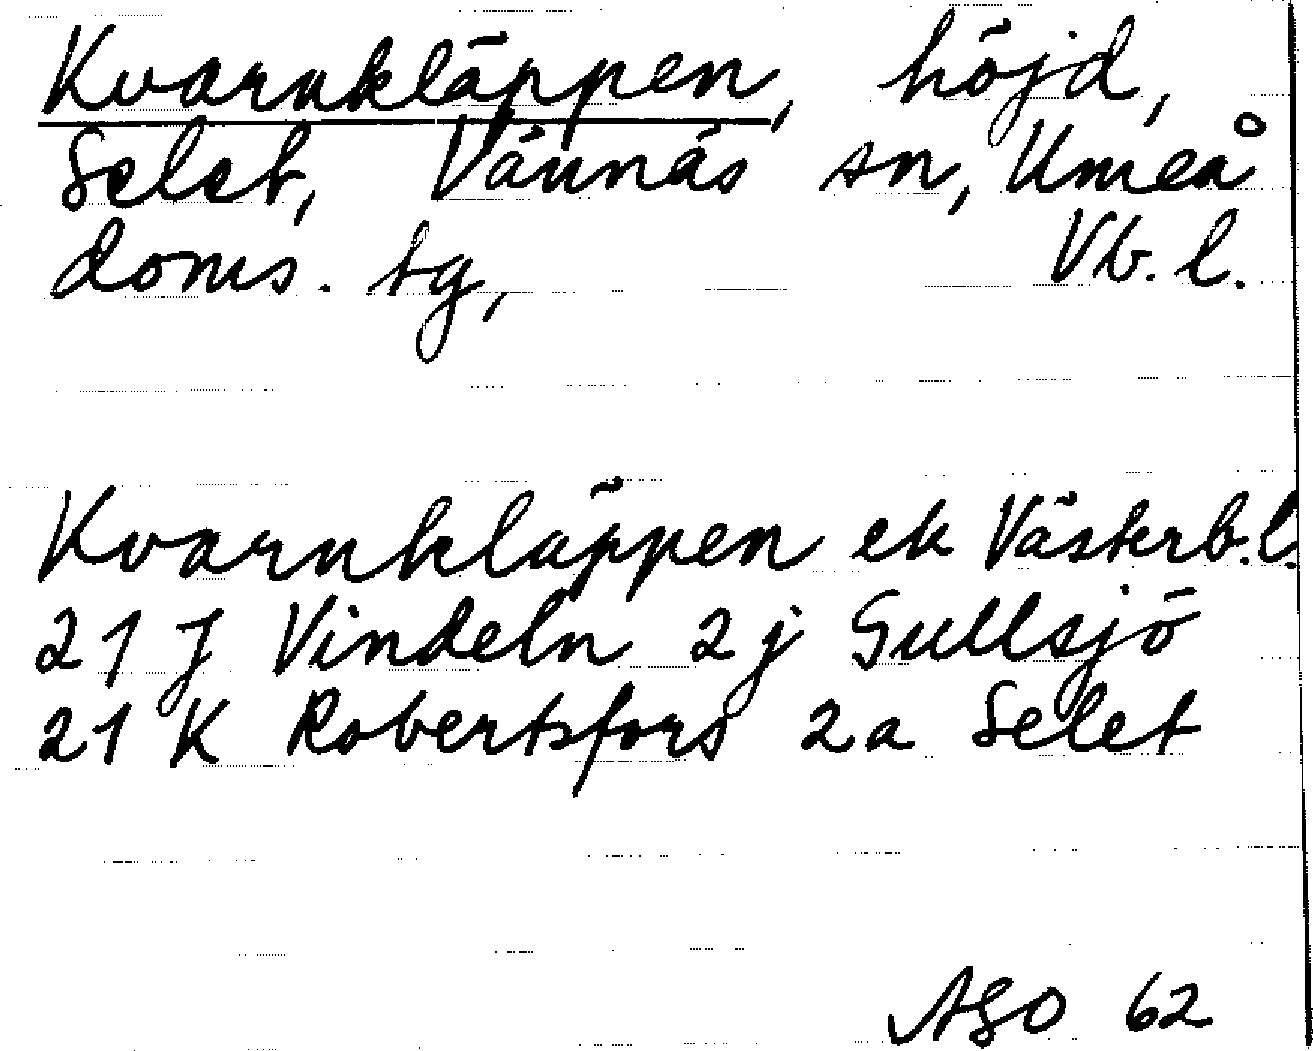 Kvarnkläppen, höjd,
Selet, Vännäs sn, Umeå
doms. tg, Vb. l.
Kvarnkläppen ek Västerb.l.
21 J Vindeln 2j Gullsjö
21 K Robertsfors 2a Selet
ASO 62